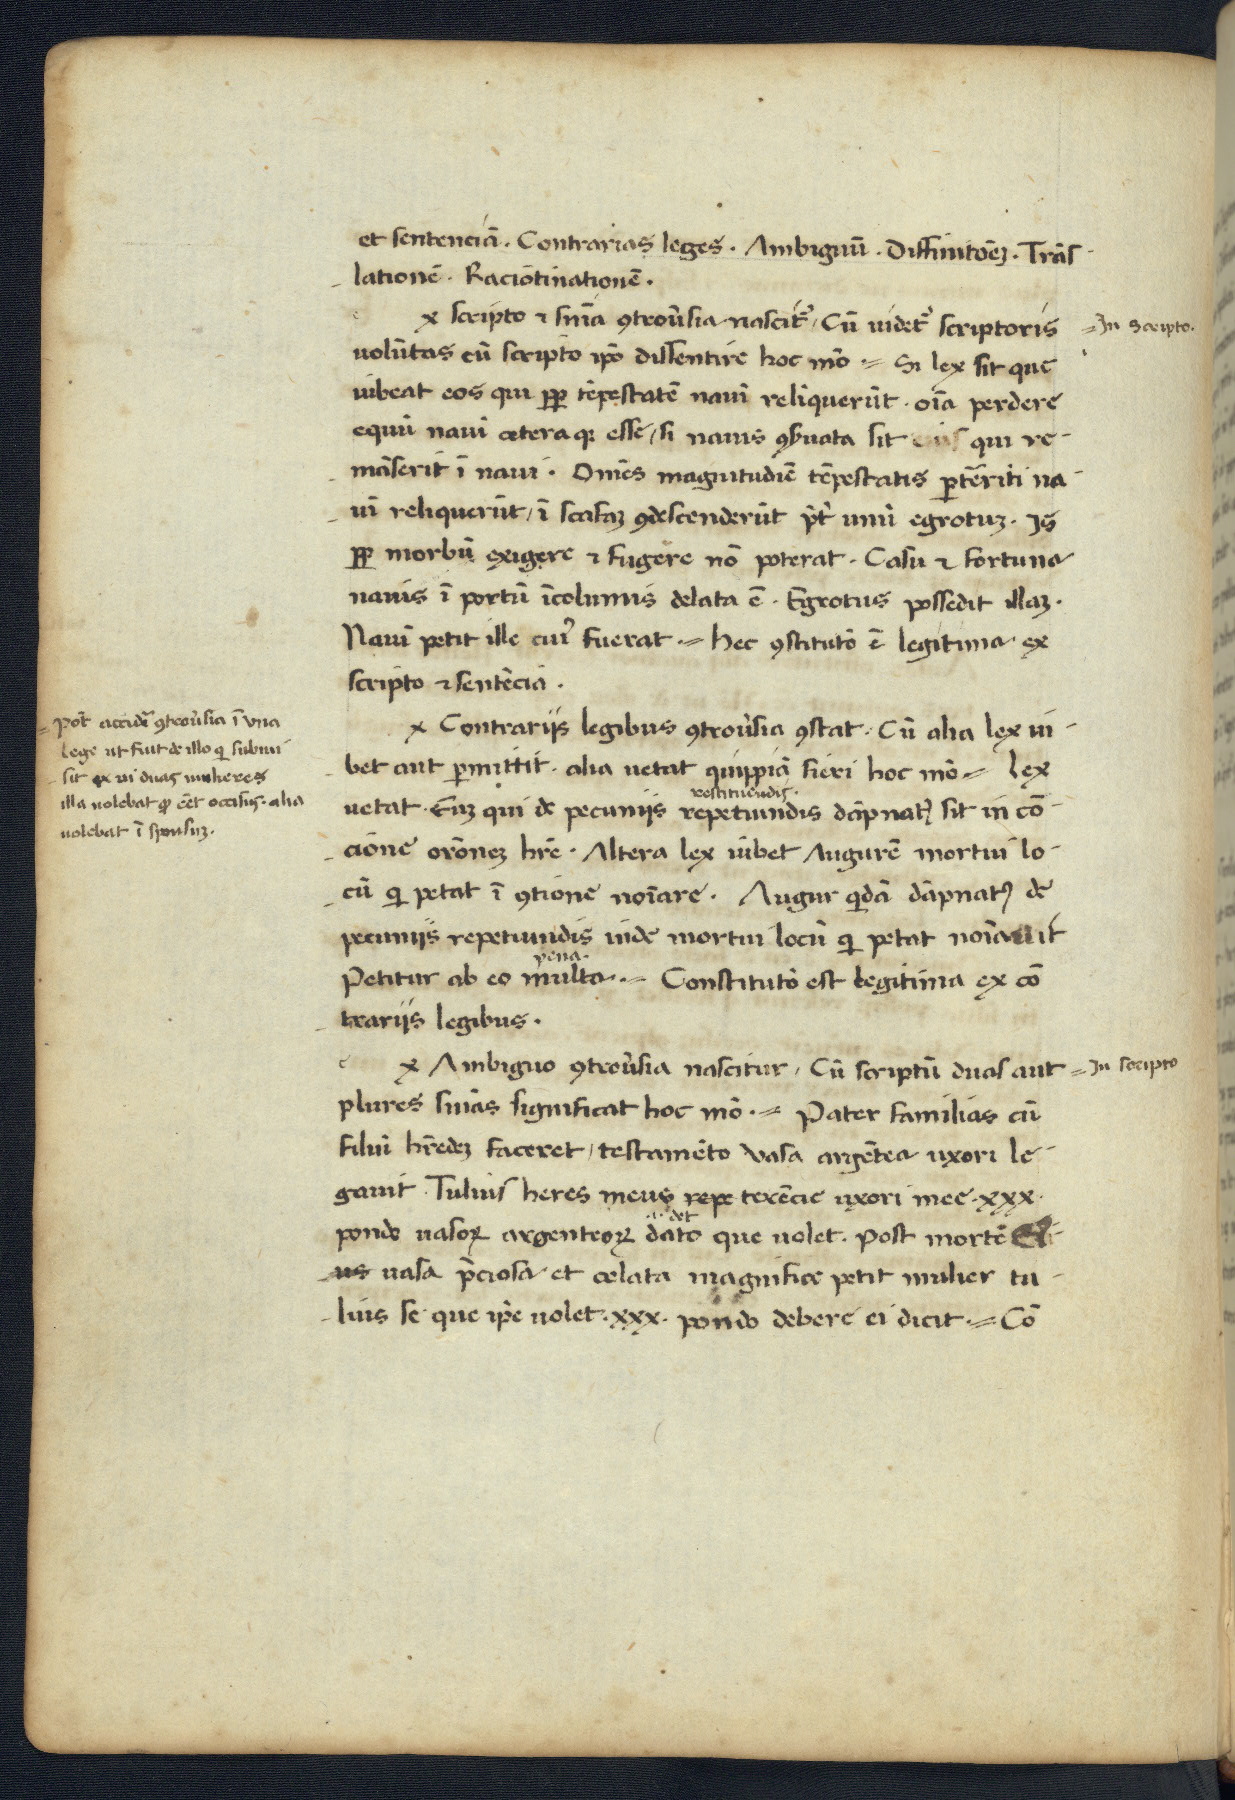 et sentenciā. Contrarias leges. Ambiguū. Diffinitōeꝫ. Trās-
-latione̅. Raciōtinatione̅.
e x scripto ⁊ sn̄ia ꝯtrou̓sia nascit᷑ / Cū uidet᷑ scriptoris
uolūtas cū scripto ip̄o dissentire hoc mō .= Si lex sit que
iubeat eos qui ꝓp tēpestatē nauī reliquerūt. oīa perdere
equū nauī ceteraqꝫ esse / si nauis ꝯs̓uata sit eius qui re-
-mās̄erit ī naui. Om̄es magnitudīe tēpestatis ꝑtēriti na-
uī reliquerūt / ī scafaꝫ ꝯdescenderūt p̄t̓ unū egrotuꝫ. Is
ꝓp morbū exigere ⁊ fugere nō poterat. Casu ⁊ fortuna
nauis ī portū īcolumis delata ē. Egrotus possedit illaꝫ.
Nauī petit ille cui᷒ fuerat .= hec ꝯstitutō ē legitima ex
scripto ⁊ sentēcia.
x Contrarijs legibus ꝯtrou̓sia ꝯstat. Cū alia lex iu-
-bet aut ꝑmittit. alia uetat quippiā fieri hoc mō = lex
restituendis.
uetat. Euꝫ qui de pecunijs repetundis dāpnat᷒ sit in cō-
-cione orōneꝫ hr̄e. Altera lex iubet Augurē mortui lo-
-cū qi petat ī ꝯtione noīare. Augur qidā dāpnat᷒ de
pecunijs repetundis inde mortui locū qi petat noīauit
pena.
Petitur ab eo multa .= Constitutō est legitima ex cō
-trarijs legibus.
e x Ambiguo ꝯtrou̓sia nascitur / Cū scriptū duas aut
plures sn̄ias significat hoc mō .= Pater familias cū
filiū hr̄edeꝫ faceret / testamēto vasa argētea uxori le-
gauit. Tulius heres meus repe terēcie uxori mee .xxx.
det
pondo uasoꝝ argenteoꝝ dato que uolet. Post mortē ei-
-us uasa p̄ciosa et celata magnifice petit mulier tu-
-lius se que ip̄e uolet .xxx. pondo debere ei dicit .= Cō
= In scripto.
= Pot̄ accidē ꝯtrou̓sia ī vna
lege ut fuit de illo qi subrui
sit ex ui duas mulieres
illa uolebat qd eēt occisus. alia
uolebat ī sponsuꝫ.
= In scripto